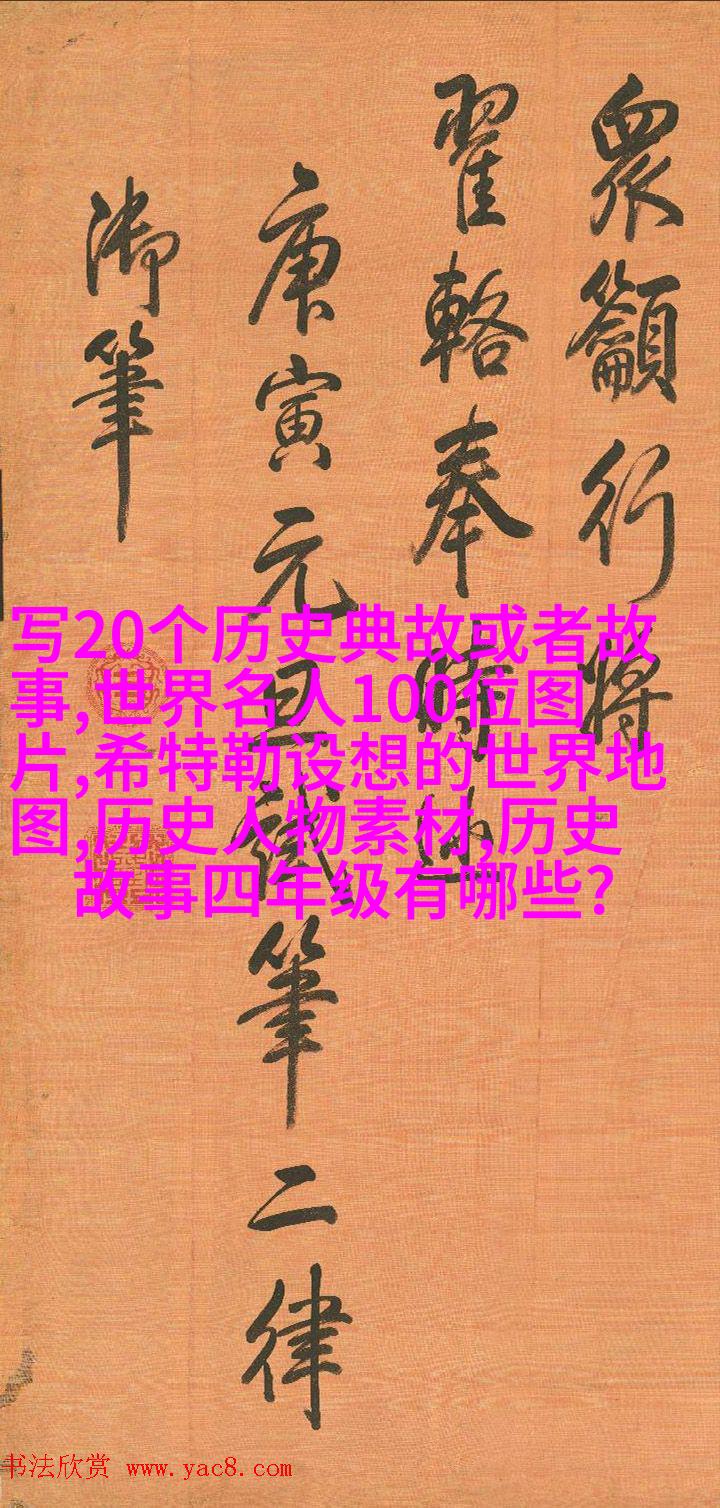 衆籲行將
翟輅奉時巡
庚寅元旦試筆二律
御筆
写20个历史典故或者故
事,世界名人100位图
片,希特勒设想的世界地
图,历史人物素材,历史
故事四年级有哪些?
书法欣赏 www.yac8.com